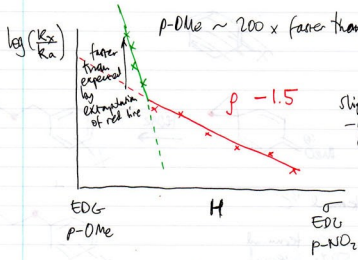 log(Kx/Ka)
p-OMe ~ 200 x faster than
faster
than
expected
by
extrapolation
of red line
ρ -1.5
EDG
p-OMe
H
σ
EDG
p-NO2